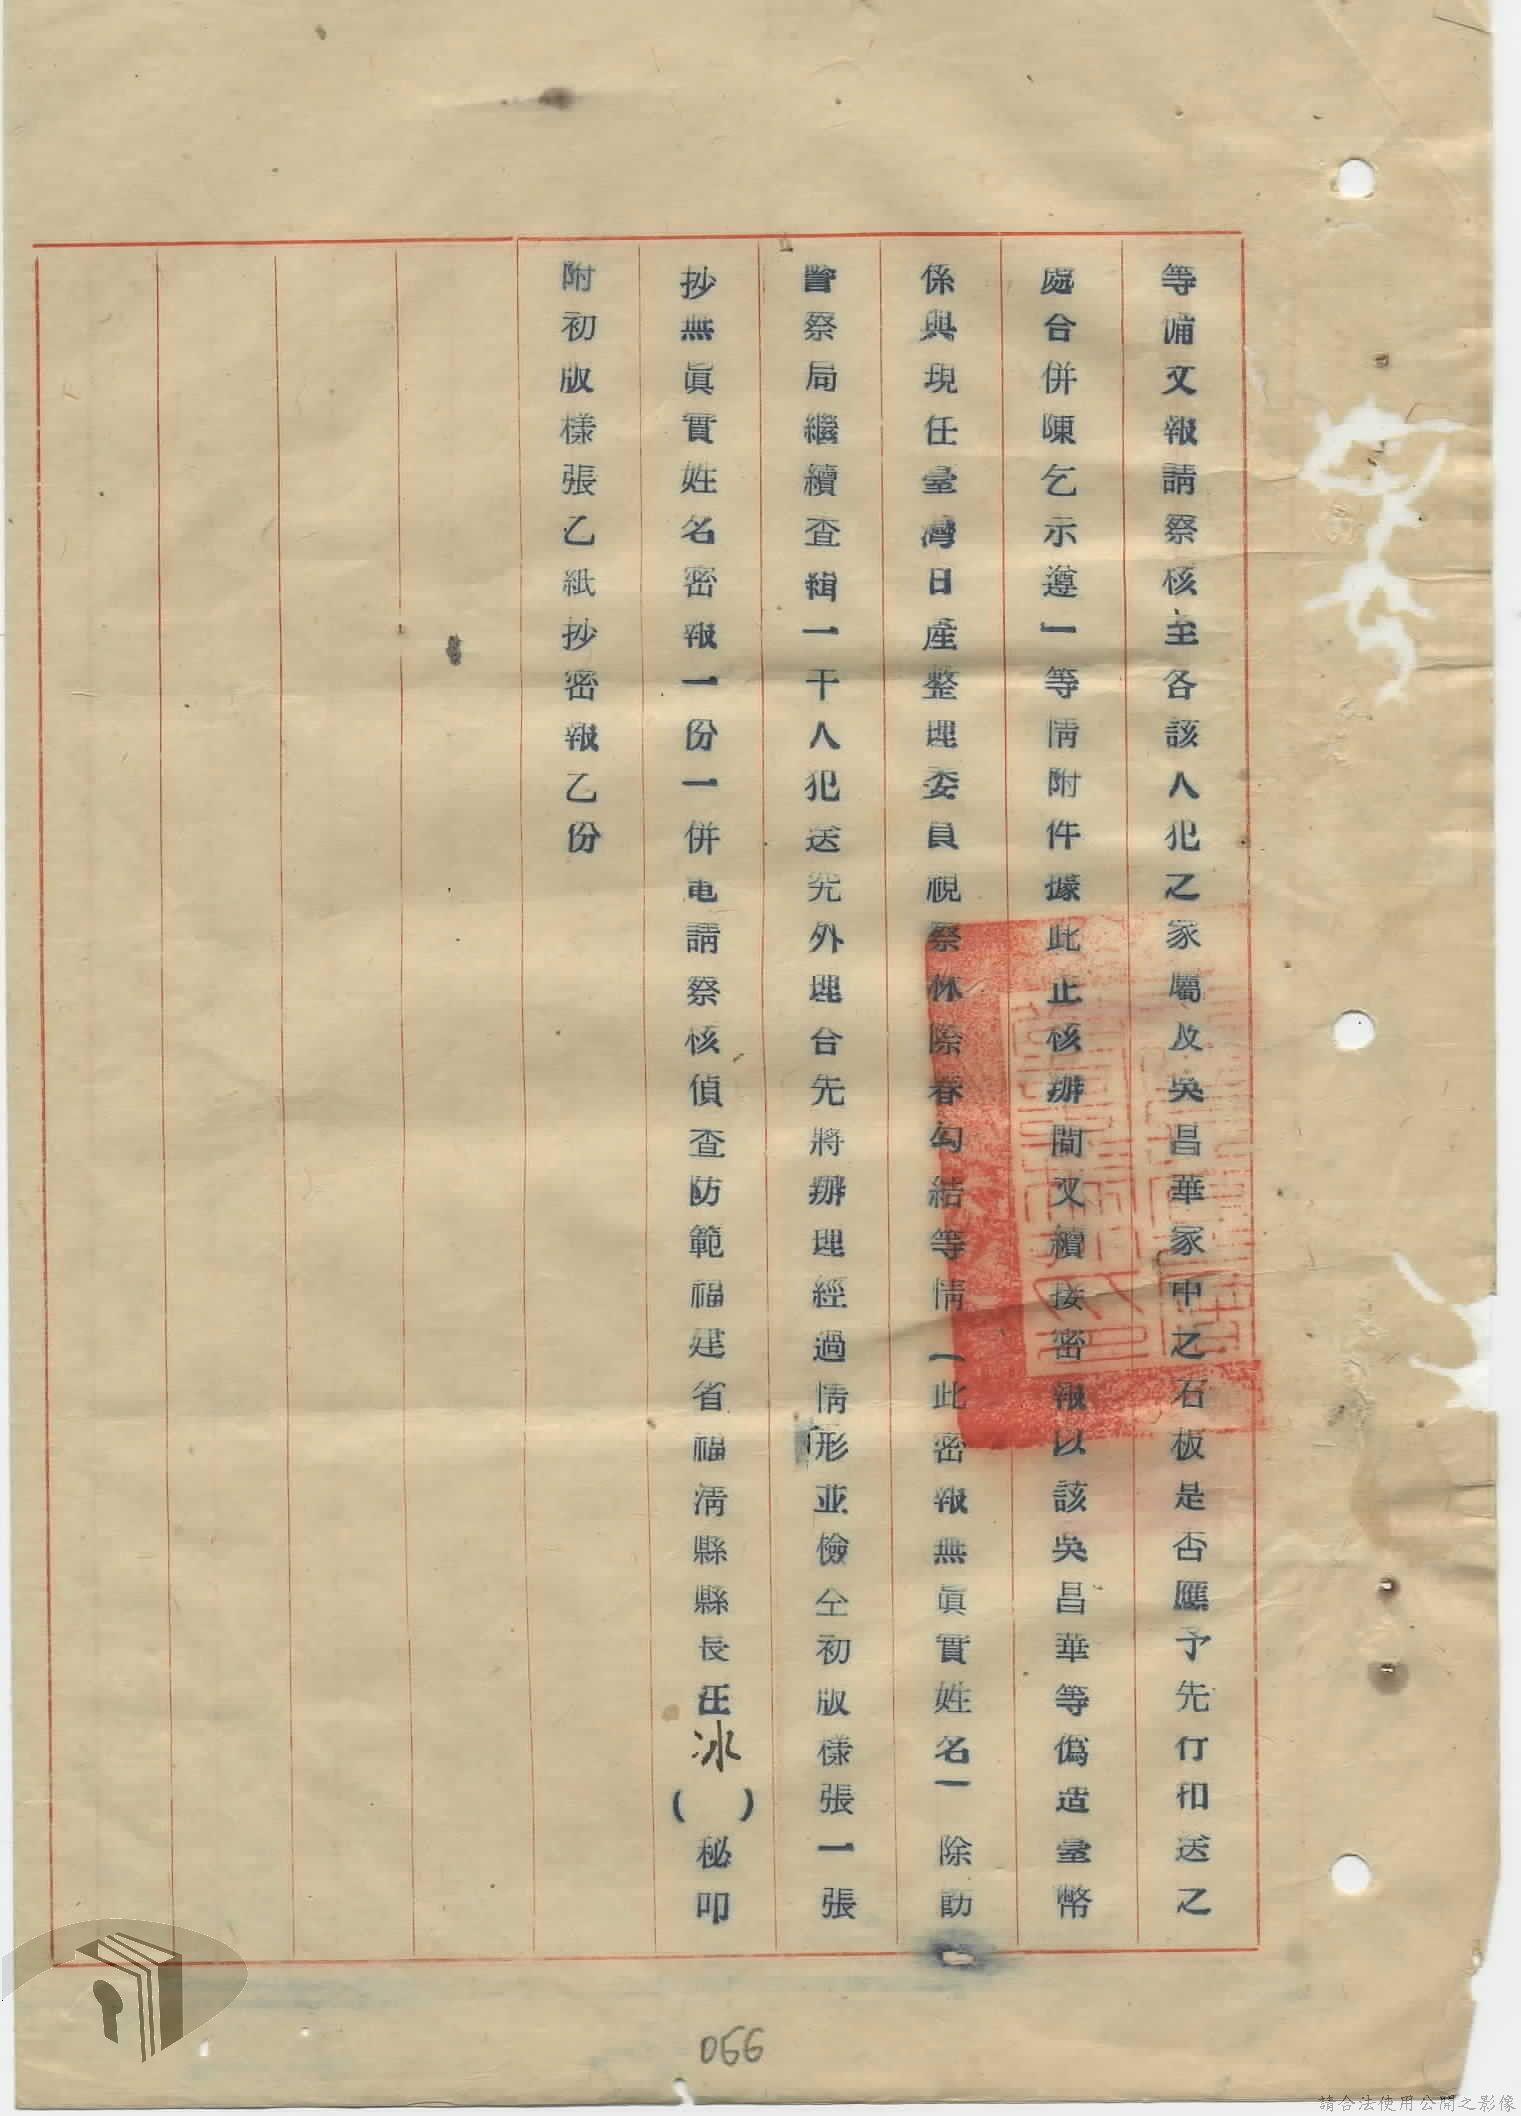 等備文報請察核至各該人犯之家屬及吳昌華家中之石板是否應予先行扣送之
處合併陳乞示遵」等情附件據此正核辦間又續接密報以該吳昌華等偽造臺幣
係與現任臺灣日產整理委員視察林除春勾結等情(此密報無眞實姓名)除飭
警察局繼續查緝一干人犯送究外理合先將辦理經過情形並檢仝初版樣張一張
抄無眞實姓名密報一份一併電請察核偵查防範福建省福淸縣縣長汪冰( )秘叩
附初版樣張乙紙抄密報乙份
066
請合法使用公開之影像